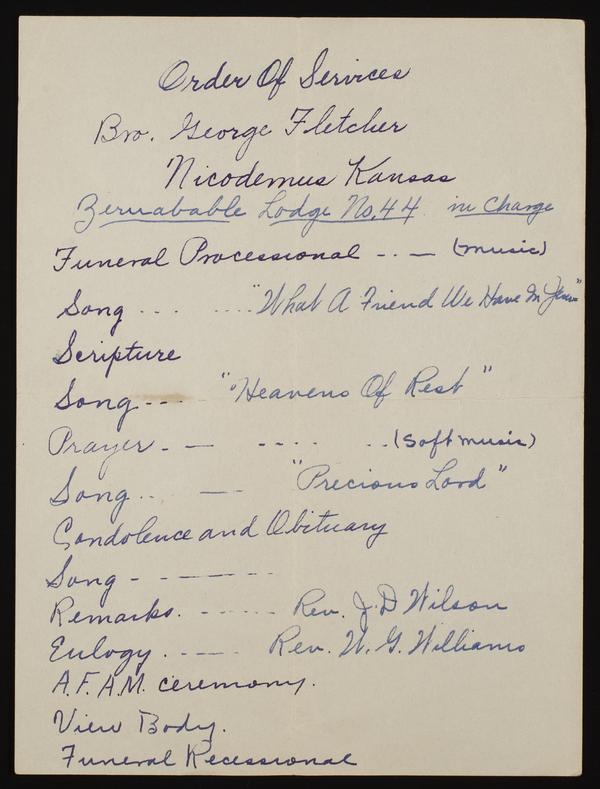 Order Of Services
Bro. George Fletcher
Nicodemus Kansas
Zeruabable Lodge No. 44 in Charge
Funeral Processional - . - (music)
Song ... .... "What A Friend We Have In Jesus"
Scripture
Song - - - "Heavens Of Rest"
Prayer - — - - - - . . (soft music)
Song .. — "Precious Lord"
Condolence and Obituary
Song - - - - - - -
Remarks. - - - - - Rev. J. D Wilson
Eulogy . - - - - Rev. W. G. Williams
A.F. A.M. ceremony.
View Body.
Funeral Recessional